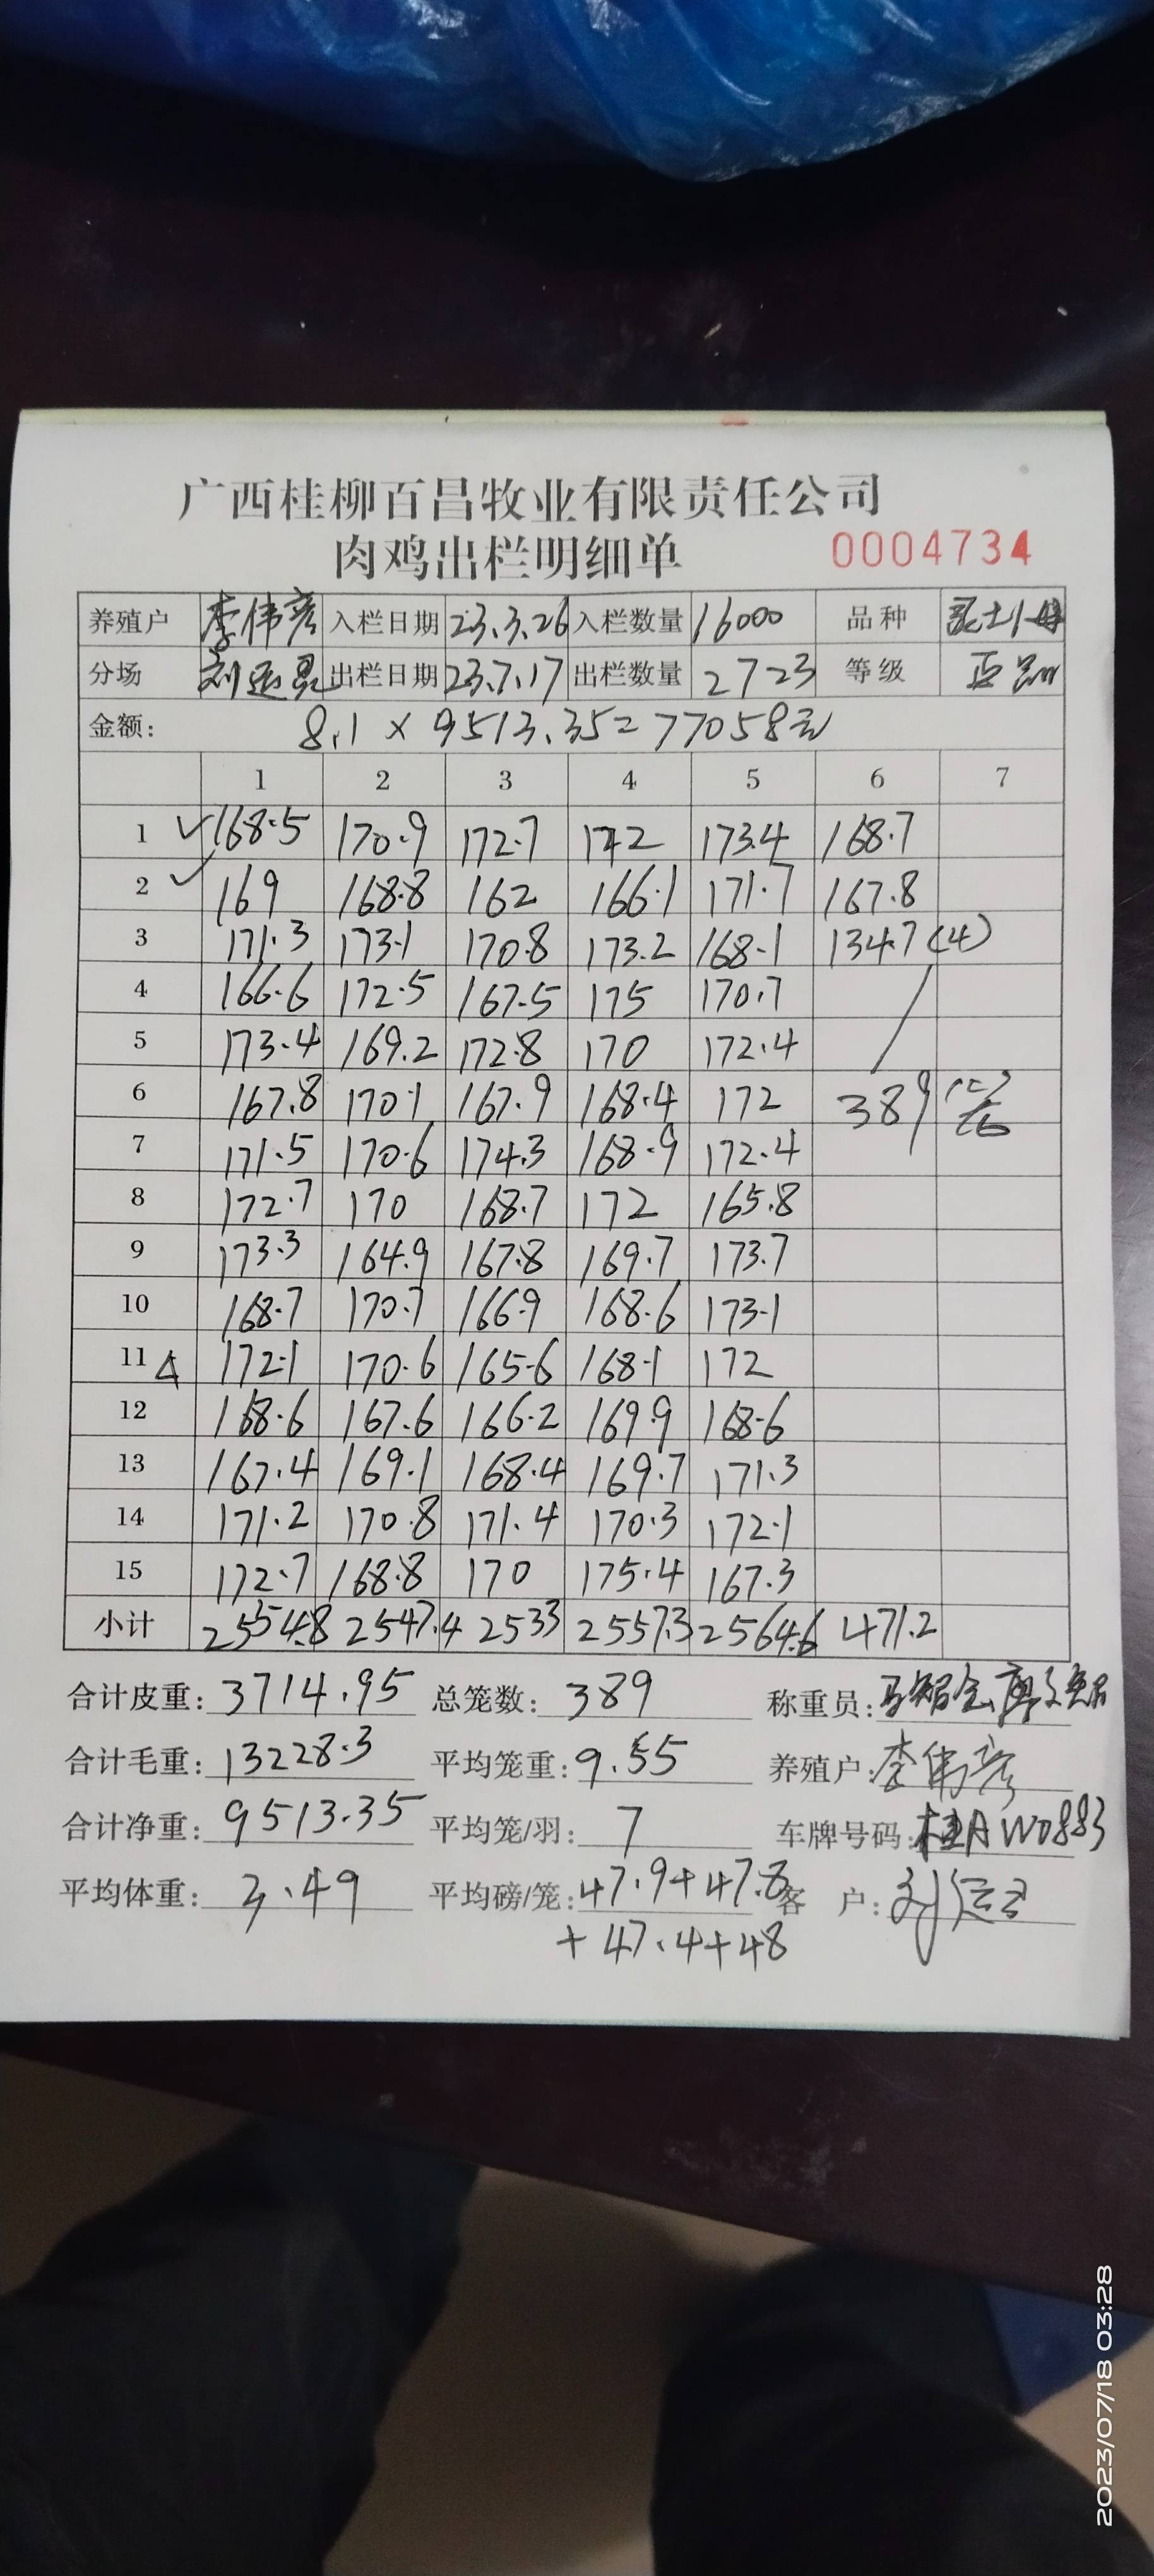 广西桂柳百昌牧业有限责任公司
肉鸡出栏明细单 0004734
养殖户 李伟彦 入栏日期 23.3.26 入栏数量 16000 品种
分场 出栏日期 23.7.17 出栏数量 2723 等级
金额: 8.1 × 9513.35 = 77058元
1 2 3 4 5 6 7
1 168.5 170.9 172.7 172 173.4 168.7
2 169 168.8 162 166.1 171.7 167.8
3 171.3 173.1 170.8 173.2 168.1 134.7 (4)
4 166.6 172.5 167.5 175 170.7
5 173.4 169.2 172.8 170 172.4
6 167.8 170.1 167.9 168.4 172 389
7 171.5 170.6 174.3 168.9 172.4
8 172.7 170 168.7 172 165.8
9 173.3 164.9 167.8 169.7 173.7
10 168.7 170.7 166.9 168.6 173.1
11 172.1 170.6 165.6 168.1 172
12 168.6 167.6 166.2 169.9 168.6
13 167.4 169.1 168.4 169.7 171.3
14 171.2 170.8 171.4 170.3 172.1
15 172.7 168.8 170 175.4 167.3
小计 2554.8 2547.4 2533 2557.3 2564.6 471.2
合计皮重: 3714.95 总笼数: 389 称重员:
合计毛重: 13228.3 平均笼重: 9.55 养殖户: 李伟彦
合计净重: 9513.35 平均笼/羽: 7 车牌号码: 桂A W0883
平均体重: 3.49 平均磅/笼: 47.9+47.8 客 户:
+47.4+48
2023/07/18 03:28